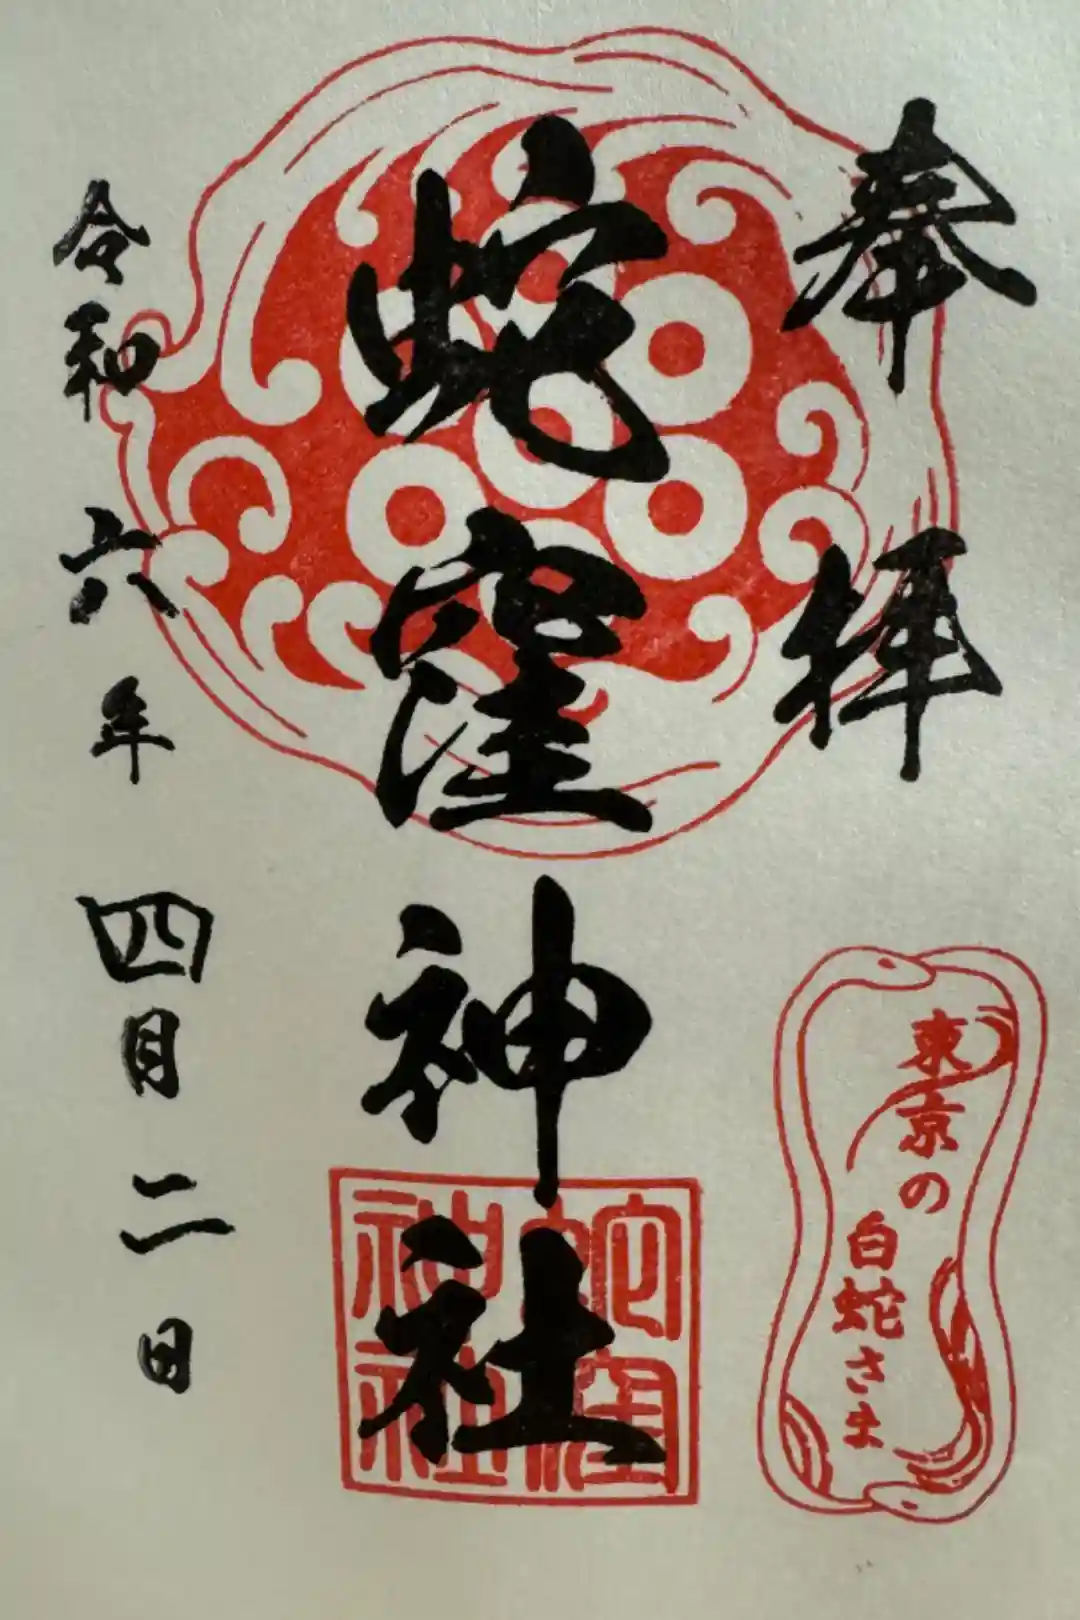 奉拝
蛇窪神社
蛇窪神社
令和六年四月二日
東京の
白蛇さま